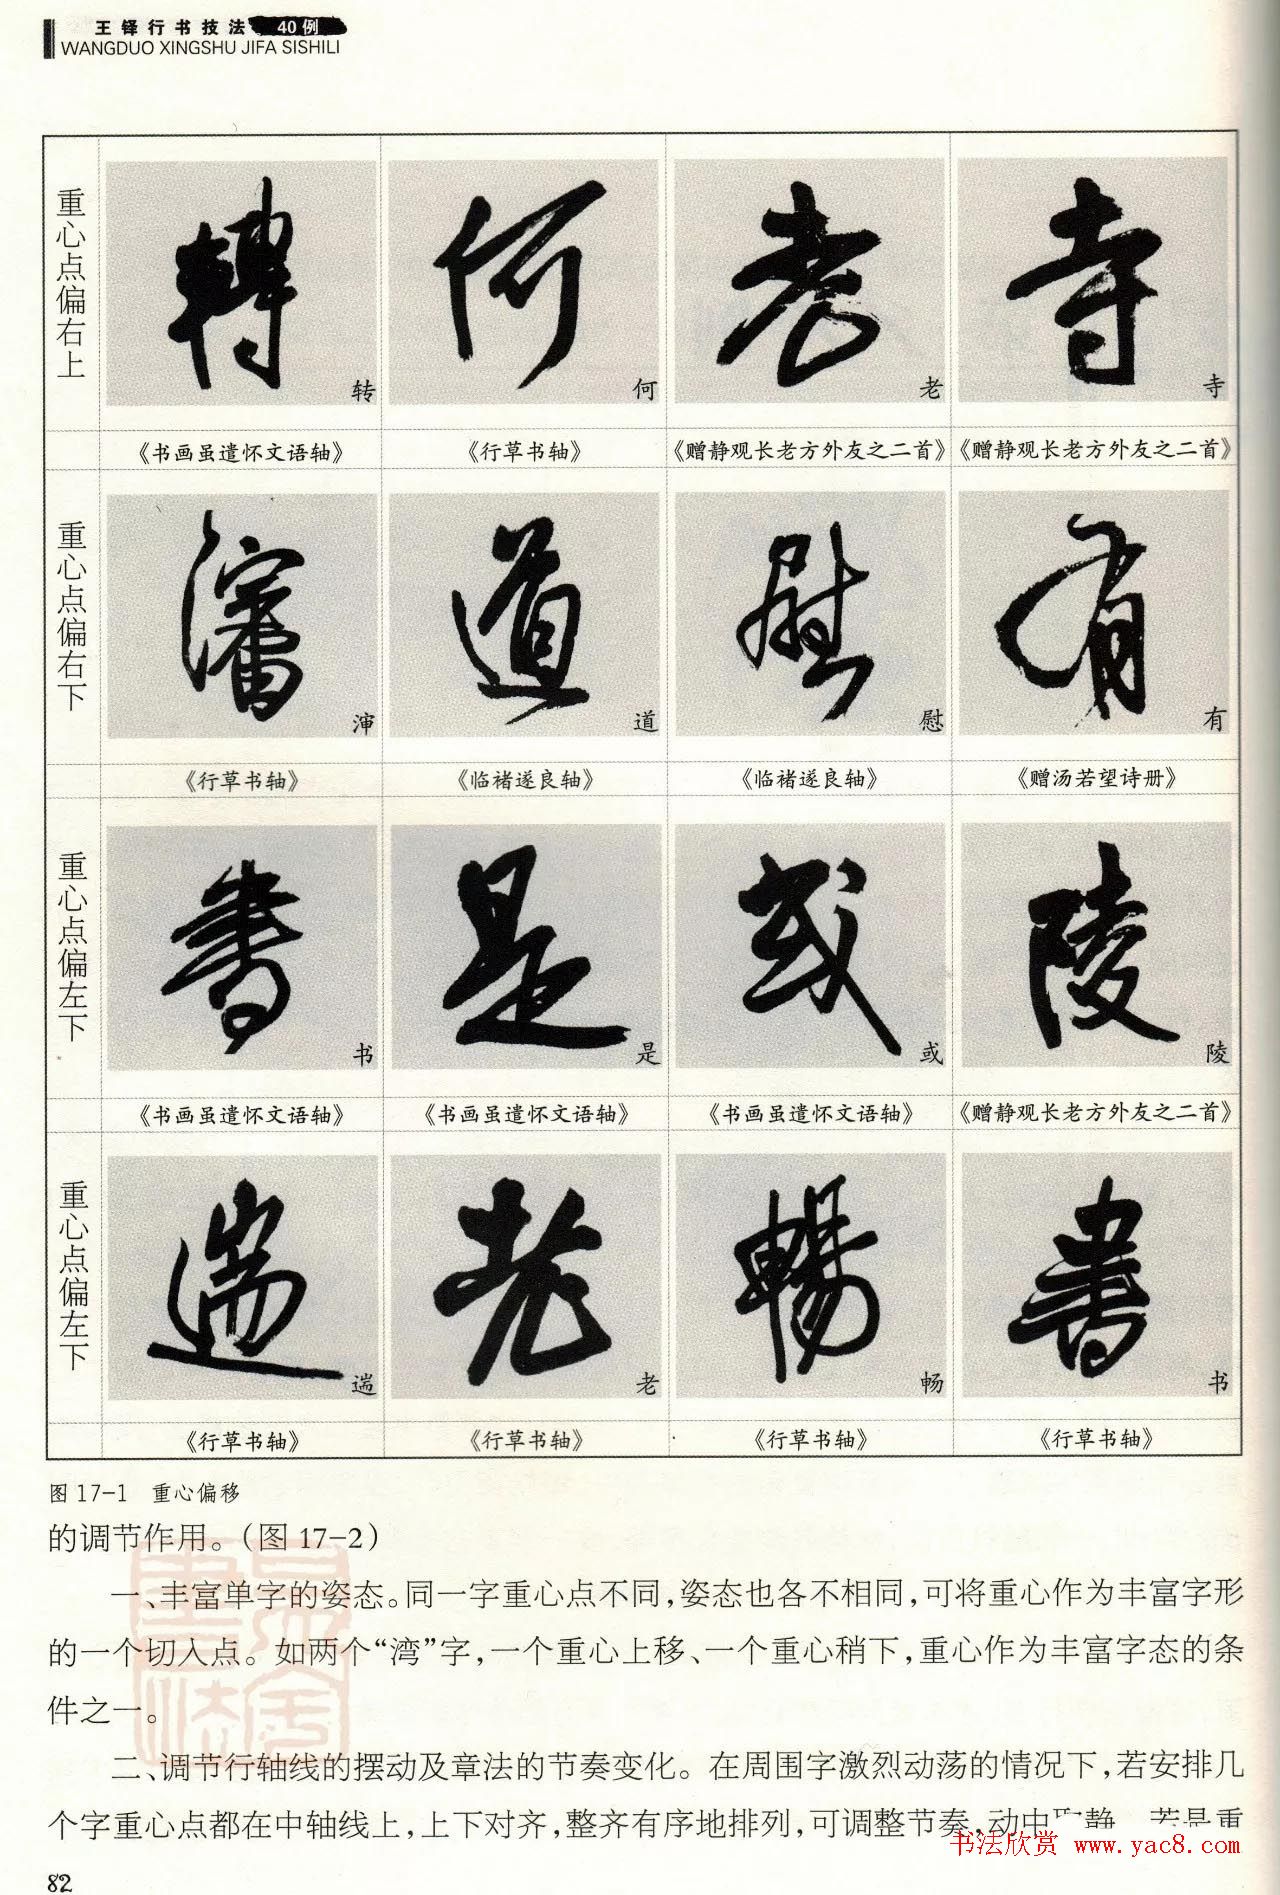 王铎行书技法 40例
WANGDUO XINGSHU JIFA SISHILI
重心点偏右上
转
何
老
寺
《书画虽遣怀文语轴》
《行草书轴》
《赠静观长老方外友之二首》
《赠静观长老方外友之二首》
重心点偏右下
渖
道
慰
有
《行草书轴》
《临褚遂良轴》
《临褚遂良轴》
《赠汤若望诗册》
重心点偏左下
书
是
或
陵
《书画虽遣怀文语轴》
《书画虽遣怀文语轴》
《书画虽遣怀文语轴》
《赠静观长老方外友之二首》
重心点偏左下
遄
老
畅
书
《行草书轴》
《行草书轴》
《行草书轴》
《行草书轴》
图 17-1 重心偏移
的调节作用。（图 17-2）
一、丰富单字的姿态。同一字重心点不同，姿态也各不相同，可将重心作为丰富字形
的一个切入点。如两个“湾”字，一个重心上移、一个重心稍下，重心作为丰富字态的条
件之一。
二、调节行轴线的摆动及章法的节奏变化。在周围字激烈动荡的情况下，若安排几
个字重心点都在中轴线上，上下对齐，整齐有序地排列，可调整节奏，动中取静。若是重
书法欣赏 www.yac8.com
82